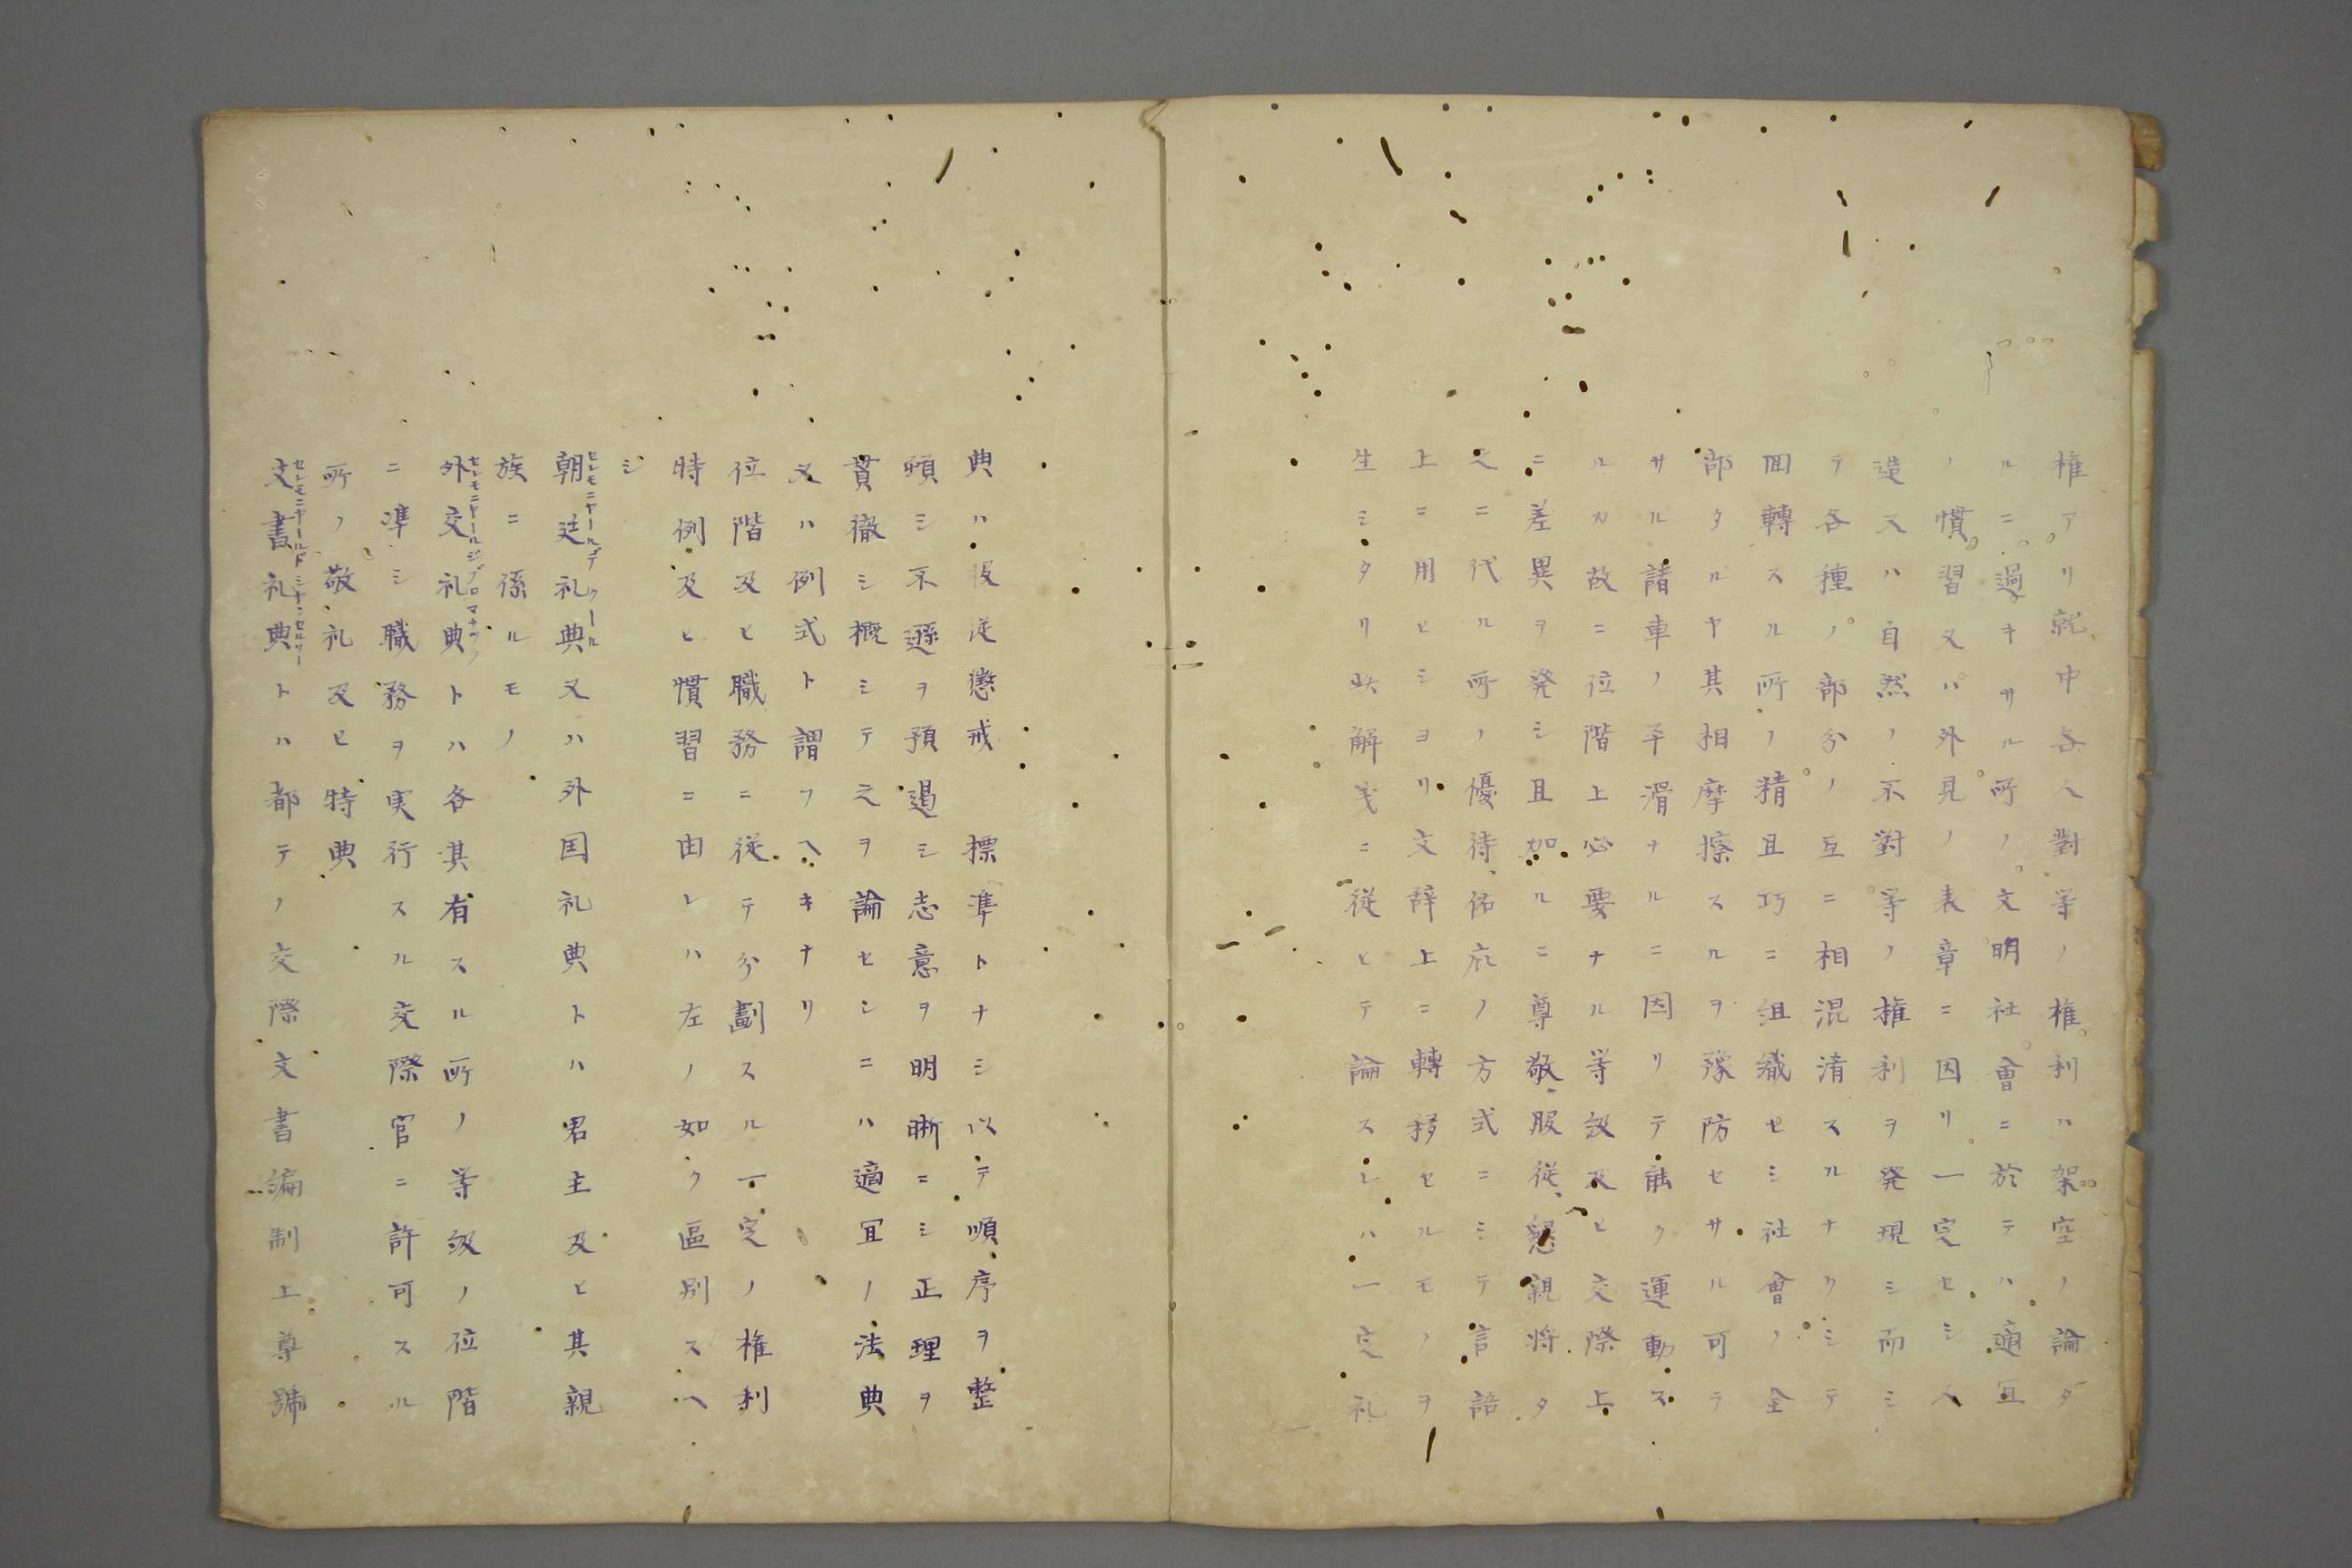 権アリ就中各人對等ノ権利ハ架空ノ論タ
ルニ過キサル所ノ文明社會ニ於テハ適宜
ノ慣習又ハ外見ノ表章ニ因リ一定セシ人
造又ハ自然ノ不對等ノ権利ヲ発現シ而シ
テ各種ノ部分ノ互ニ相混淆スルナクシテ
囬轉スル所ノ精且巧ニ組織セシ社會ノ全
部タルヤ其相摩擦スルヲ豫防セサル可テ
サル諸車ノ平滑ナルニ因リテ能ク運動ス
ルカ故ニ位階上必要ナル等級及ヒ交際上
ニ差異ヲ発シ且加ルニ尊敬、服従、懇親将タ
之ニ代ル所ノ優待、佑庇ノ方式ニシテ言語
上ニ用ヒシヨリ文辞上ニ轉移セルモノヲ
生シタリ此解義ニ従ヒテ論スレハ一定礼
典ハ服従懲戒ノ標準トナシ以テ順序ヲ整
頓シ不遜ヲ預遏シ志意ヲ明晰ニシ正理ヲ
貫徹シ概シテ之ヲ論センニハ適宜ノ法典
又ハ例式ト謂フヘキナリ
位階及ヒ職務ニ従テ分劃スル一定ノ権利
時例及ヒ慣習ニ由レハ左ノ如ク區別スヘ
シ
朝廷礼典又ハ外国礼典トハ君主及ヒ其親
セレモニヤールデクール
族ニ係ルモノ
外交礼典トハ各其有スル所ノ等級ノ位階
セレモニヤールジプロマチック
ニ準シ職務ヲ実行スル交際官ニ許可スル
所ノ敬礼及ヒ特典
文書礼典トハ都テノ交際文書編制上尊號
セレモニヤールドシヤンセルリー